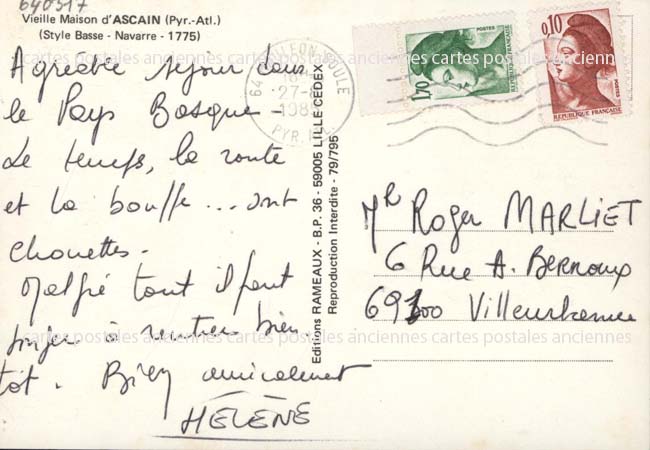 640517
Vieille Maison d'ASCAIN (Pyr.-Atl.)
(Style Basse - Navarre - 1775)
Agréable séjour dans
le Pays Basque -
Le temps, la route
et la bouffe ... sont
chouettes.
Malgré tout il faut
songer à rentrer bien
tôt. Bien amicalement
HÉLÈNE
Editions RAMEAUX - B.P. 36 - 59005 LILLE CEDEX
Reproduction Interdite - 79/795
64 MAULEON-SOULE
27-
PYR.
1,70
POSTES
REPUBLIQUE FRANÇAISE
0,10
POSTES
REPUBLIQUE FRANÇAISE
Mr Roger MARLIET
6 Rue A. BERNOUX
69100 Villeurbanne
cartes postales anciennes cartes postales anciennes cartes postales anciennes
cartes postales anciennes cartes postales anciennes cartes postales anciennes